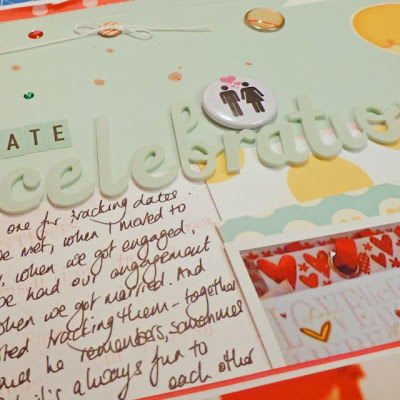 ATE
celebration
one for tracking dates.
we met, when I moved to
, when we got engaged,
we had our engagement
when we got married. And
ted tracking them - together
he remembers, sometimes
it's always fun to
each other
LOVE